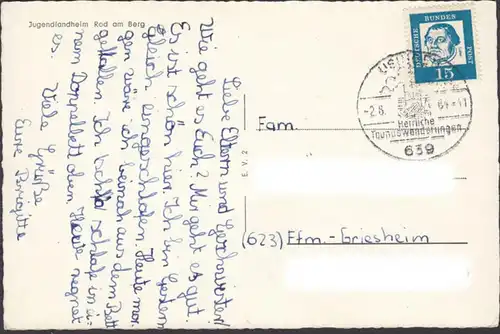 Jugendlandheim Rod am Berg
Liebe Eltern und Geschwister!
Wie geht es Euch? Mir geht es gut.
Es ist schön hier. Ich bin gestern
gleich eingeschlafen. Heute mor-
gen wäre ich beinah aus dem Bett
gefallen. Ich schlafe in ei-
nem Doppelbett oben. Heute regnet
es.
Viele Grüße
Eure Birgitte
E.V.2
DEUTSCHE BUNDES POST
15
USINGEN
-2.6. 64-11
Herrliche
Taunuswanderungen
639
Fam.
(623) Ffm.-Griesheim